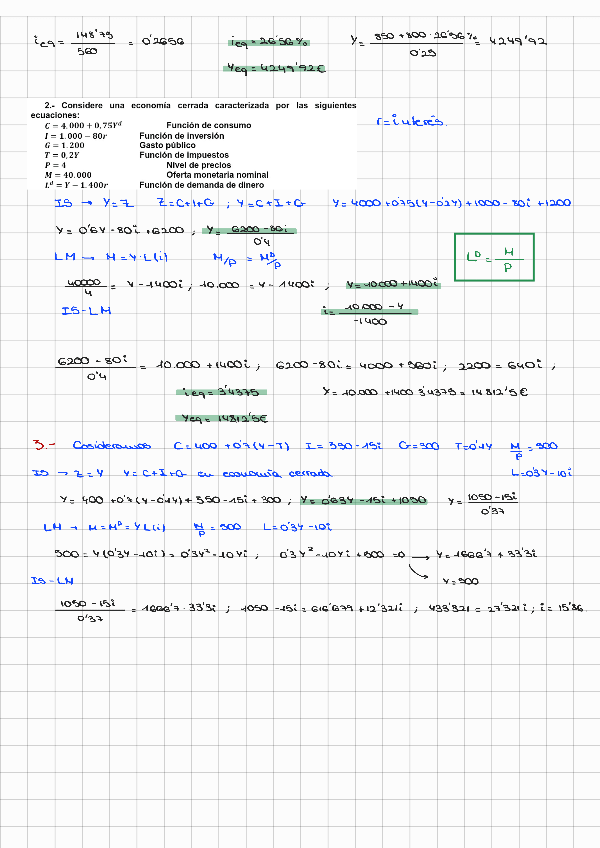 i eq = 148'75 / 560 = 0'2656    i eq = 26'56%    Y = 850 + 800 · 26'56% / 0'25 = 4249'92
Y eq = 4249'92€
2.- Considere una economía cerrada caracterizada por las siguientes
ecuaciones:
C = 4.000 + 0,75Yᵈ    Función de consumo    r = interés.
I = 1.000 − 80r    Función de inversión
G = 1.200    Gasto público
T = 0,2Y    Función de impuestos
P = 4    Nivel de precios
M = 40.000    Oferta monetaria nominal
Lᵈ = Y − 1.400r    Función de demanda de dinero
IS → Y=Z    Z=C+I+G ; Y=C+I+G    Y=4000+0'75(Y-0'2Y)+1000-80i+1200
Y= 0'6Y-80i+6200 ; Y= 6200-80i / 0'4
LM → M=Y·L(i)    M/P = Mᴰ/P    Lᴰ = M / P
40000 / 4 = Y-1400i ; 10.000 = Y-1400i ; Y=10.000+1400i
IS-LM    i = 10.000-Y / -1400
6200-80i / 0'4 = 10.000+1400i ; 6200-80i = 4000+560i ; 2200=640i ;
i eq = 3'4375    Y=10.000+1400·3'4375 = 14812'5€
Y eq = 14812'5€
3.- Cosideramos C=400+0'7(Y-T) I=350-15i G=300 T=0'1Y M/P=500
IS → Z=Y Y=C+I+G en economía cerrada    L=0'3Y-10i
Y= 400+0'7(Y-0'1Y)+350-15i+300 ; Y=0'63Y-15i+1050    Y= 1050-15i / 0'37
LM → M=Mᴰ=YL(i)    M/P = 500    L=0'3Y-10i
500=Y(0'3Y-10i)=0'3Y²-10Yi ; 0'3Y²-10Yi+500=0 → Y=1666'7+33'3i
→ Y=500
IS-LM
1050-15i / 0'37 = 1666'7·33'3i ; 1050-15i=616'679+12'321i ; 433'321=27'321i ; i=15'86.